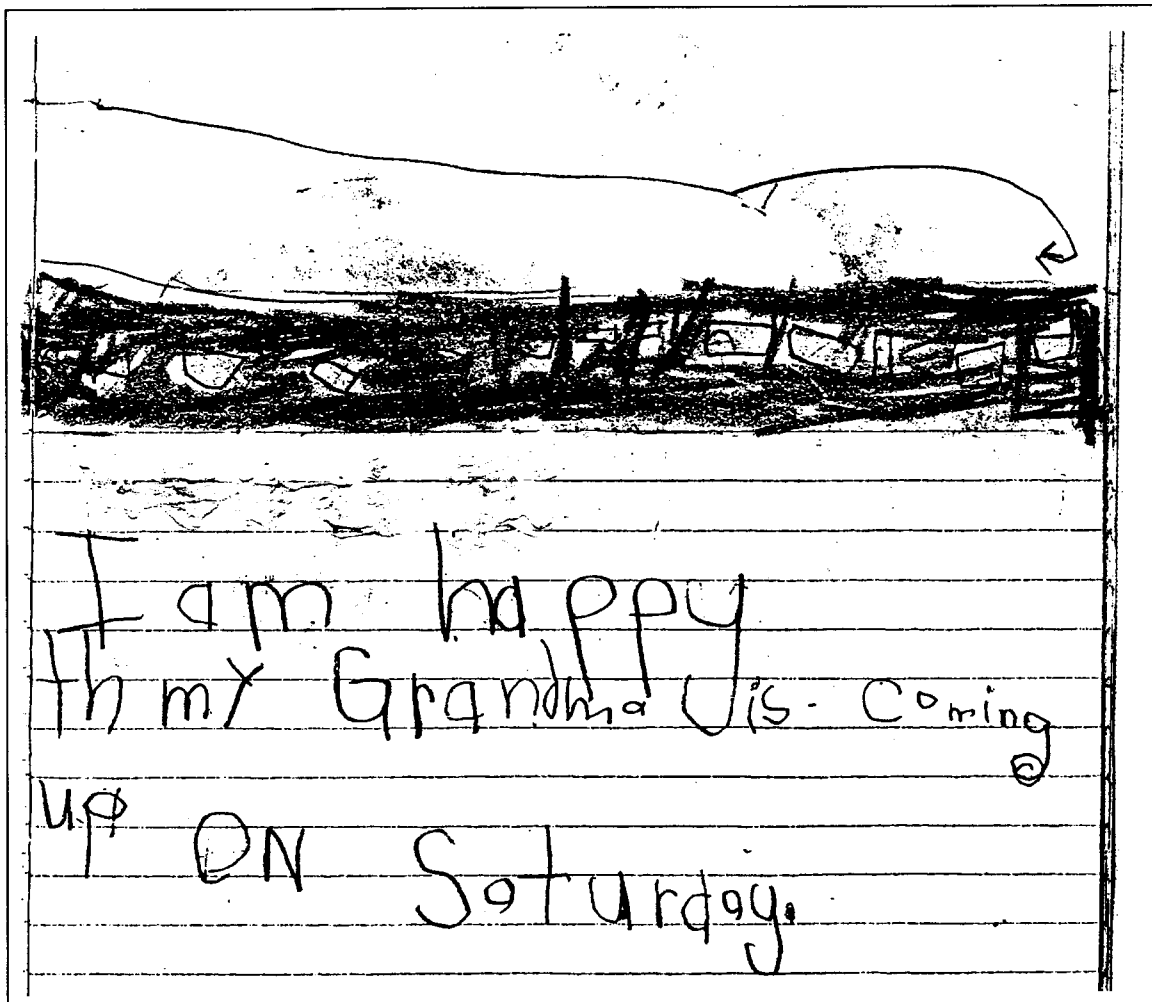 I am happy
th my Grandma is. coming
up ON Saturday.